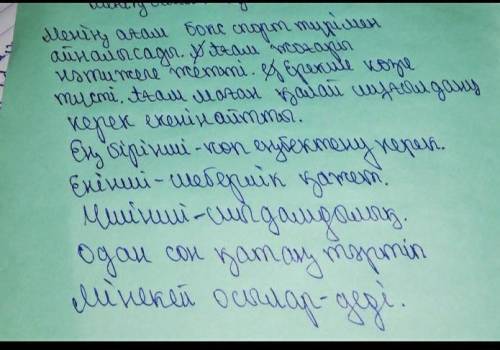 Менің ағам бокс спорт түрімен
айналысады. Ағам жоғары
нәтижеге жетті. Ерекше көзге
түсті. Ағам маған қалай шұғылдану
керек екенін айтты.
Ең бірінші - көп еңбектену керек.
Екінші - шеберлік қажет.
Үшінші - шыдамдылық.
Одан соң қатаң тәртіп
Мінекей осылар - деді.